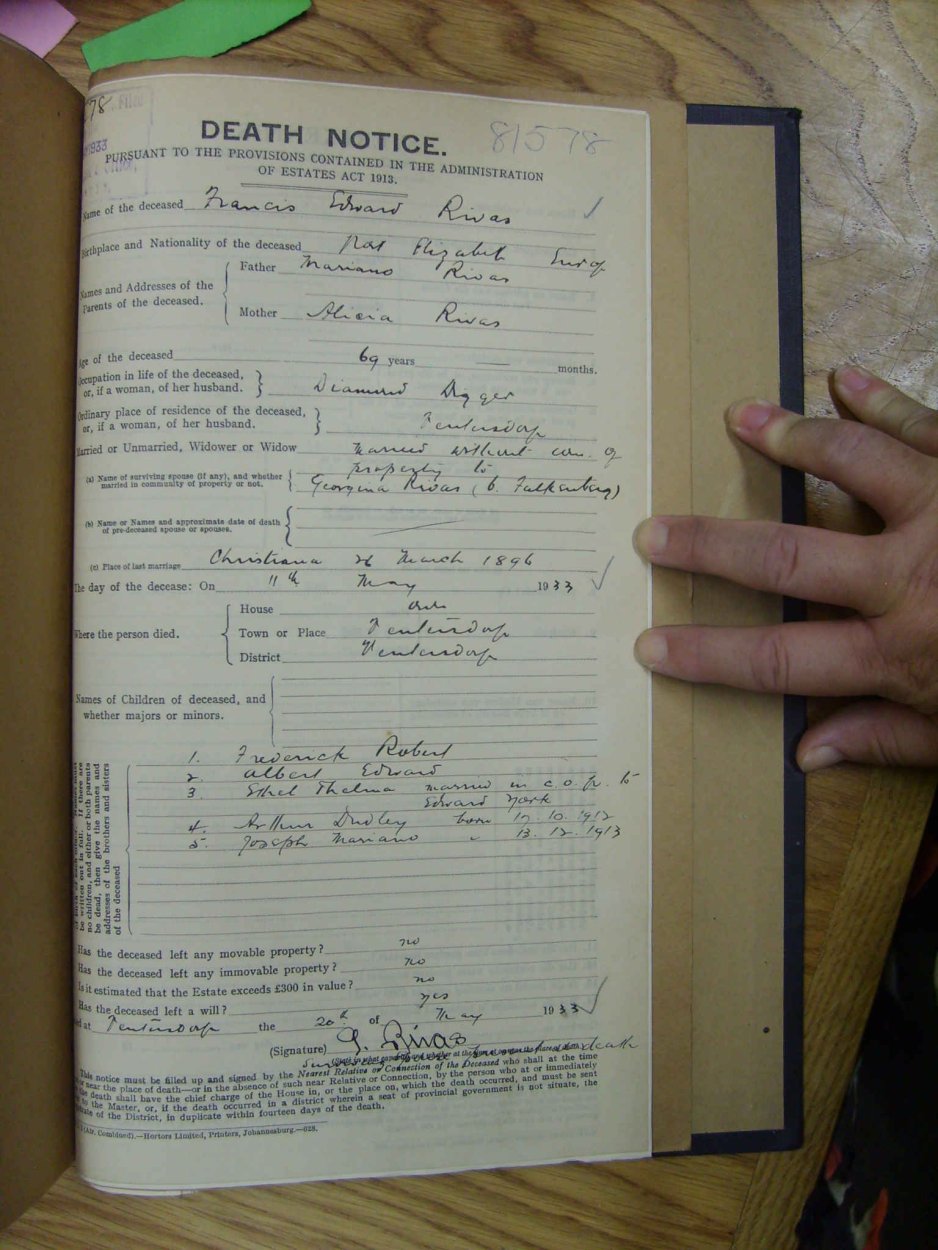 78
1933
DEATH NOTICE. 81578
PURSUANT TO THE PROVISIONS CONTAINED IN THE ADMINISTRATION
OF ESTATES ACT 1913.
Name of the deceased Francis Edward Rivas
Birthplace and Nationality of the deceased Port Elizabeth Europ
Names and Addresses of the Parents of the deceased. Father Mariano Rivas
Mother Alicia Rivas
Age of the deceased 69 years — months.
Occupation in life of the deceased, or, if a woman, of her husband. Diamond Digger
Ordinary place of residence of the deceased, or, if a woman, of her husband. Ventersdorp
Married or Unmarried, Widower or Widow married without com. of
property to
(a) Name of surviving spouse (if any), and whether married in community of property or not. Georgina Rivas (b. Falkenberg)
(b) Name or Names and approximate date of death of pre-deceased spouse or spouses.
(c) Place of last marriage Christiana 26 March 1896
The day of the decease: On 11th May 1933
Where the person died. House own
Town or Place Ventersdorp
District Ventersdorp
Names of Children of deceased, and whether majors or minors.
1. Frederick Robert
2. Albert Edward
3. Ethel Thelma married in c.o.p. to
Edward York
4. Arthur Dudley born 17.10.1912
5. Joseph Mariano " 13.12.1913
be written out in full. If there are
no children, and either or both parents
be dead, then give the names and
addresses of the brothers and sisters
of the deceased
Has the deceased left any movable property? no
Has the deceased left any immovable property? no
Is it estimated that the Estate exceeds £300 in value? no
Has the deceased left a will? yes
at Ventersdorp the 20th of May 1933
(Signature) G. Rivas
death
This notice must be filled up and signed by the Nearest Relative or Connection of the Deceased who shall at the time
or near the place of death—or in the absence of such near Relative or Connection, by the person who at or immediately
the death shall have the chief charge of the House in, or the place on, which the death occurred, and must be sent
the Master, or, if the death occurred in a district wherein a seat of provincial government is not situate, the
of the District, in duplicate within fourteen days of the death.
Combined).—Hortors Limited, Printers, Johannesburg.—628.